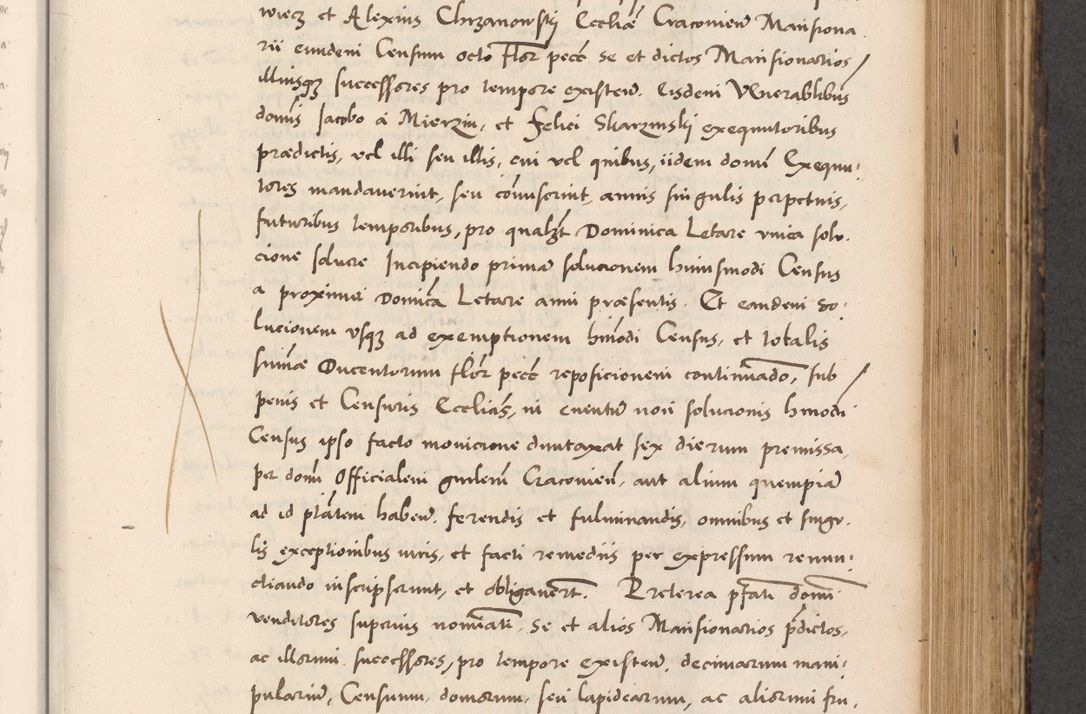 wiecz et Alexius Chrzanowskij Eccliæ Craconien̄ Mansiona
rii eundem Censum octo Flor̄ pecc̄ se et dictos Mansionarios
illiusq3 successores pro tempore existen̄. Eisdem Venerablibus
domīs Jacobo à Mierzin, et Felici Skarzinskj exequutoribus
prædictis, vel illi seu illis, cui vel quibus, iidem domī Exequu:
tores mandaverint, seu cōmiserint, annis singulis perpetuis,
futuribus temporibus, pro qualz̄t Dominica Letare unica solu.
cione soluere Incipiendo primæ solucionem huiusmodi Census
a proximei Domīca Letare anni præsentis. Et eandem so:
lucionem usq3 ad exemptionem hmōdi Census, et totalis
sum̄æ Ducentorum flor̄ pecc̄ reposicionem continuādo, sub
penis et Censuris Ecclicis̄, in eventū non solucionis hmodi
Census ipso facto monicione duntaxat sex dierum premissa
per dom̄ Officialem gnlem̄ Craconien̄, aut alium quempiā
ad id ptātem haben̄. ferendis et fulminandis, omnibus et singu.
lis exceptionibus iuris, et facti remediis per expressum renun:
ciando inscripserunt, et obligaverūt. Preterea pfati domī
venditores superius nomīati, se et alios Mansionarios p̄dictos,
ac illorum successores, pro tempore existen̄. decimarum mani:
pularium, Censuum, domorum, seu lapidearum, ac aliorum fru.